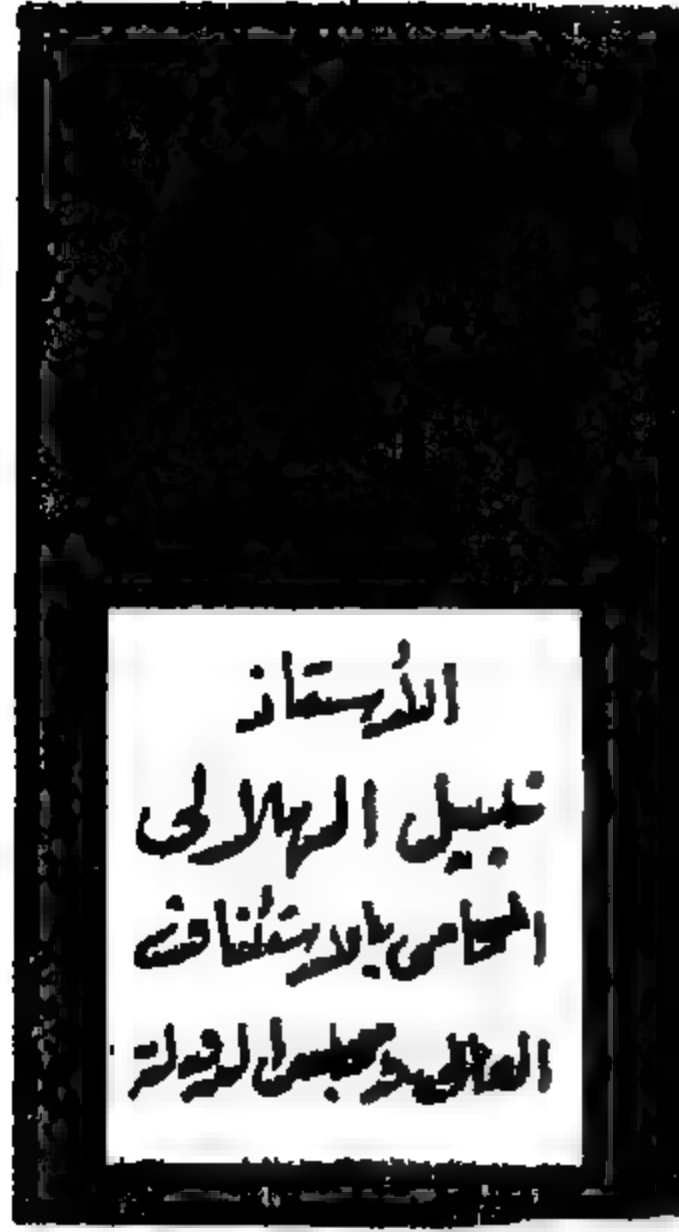 الأستاذ
نبيل الهلالى
المحامى بالاستئناف
العالى ومجلس الدولة